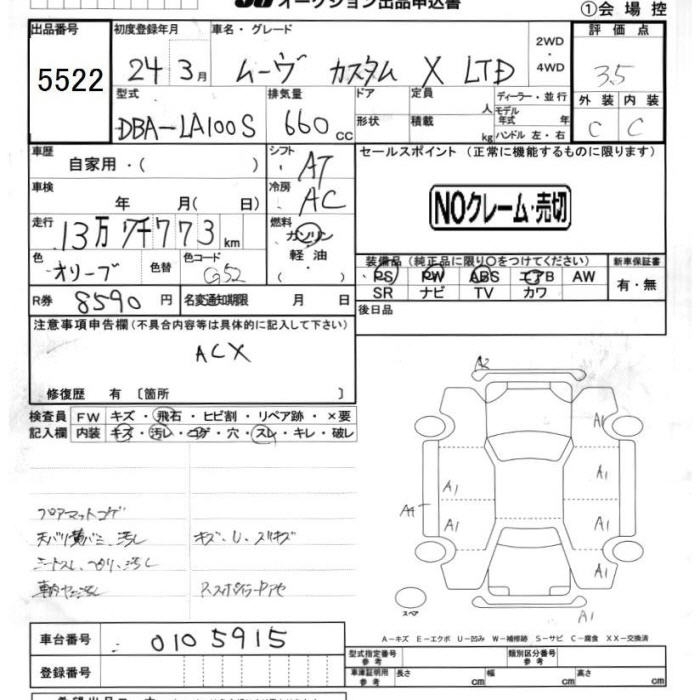 オークション出品申込書
①会場控
出品番号 初度登録年月 車名・グレード 2WD・4WD 評価点
5522 24 3月 ムーヴ カスタム X LTD 3.5
型式 排気量 ドア 定員 人 ディーラー・並行 外装 内装
DBA-LA100S 660cc 形状 積載 kg モデル年式 年 ハンドル 左・右 C C
車歴 自家用・( ) シフト AT セールスポイント (正常に機能するものに限ります)
車検 年 月 ( 日) 冷房 AC
NOクレーム・売切
走行 13万7千773km 燃料 ガソリン・軽油・( )
装備品(純正品に限り○をつけてください) 新車保証書
色 オリーブ 色替 色コード G52
PS PW ABS エアB AW 有・無
R券 8590円 名変通知期限 月 日
SR ナビ TV カワ
注意事項申告欄(不具合内容等は具体的に記入して下さい) 後日品
ACX
修復歴 有 〔箇所 〕
検査員記入欄 FW キズ・飛石・ヒビ割・リペア跡・×要
内装 キズ・汚レ・コゲ・穴・スレ・キレ・破レ
A2
A1
A1
A1
A1
A1
A1
A1
A1
フロアマットコゲ
天バリ黄バミ、汚し キズ、U、スリキズ
スペア
A-キズ E-エクボ U-凹み W-補修跡 S-サビ C-腐食 XX-交換済
車台番号 0105915
型式指定番号 参考 類別区分番号 参考
登録番号
車庫証明用 参考 長さ cm 幅 cm 高さ cm